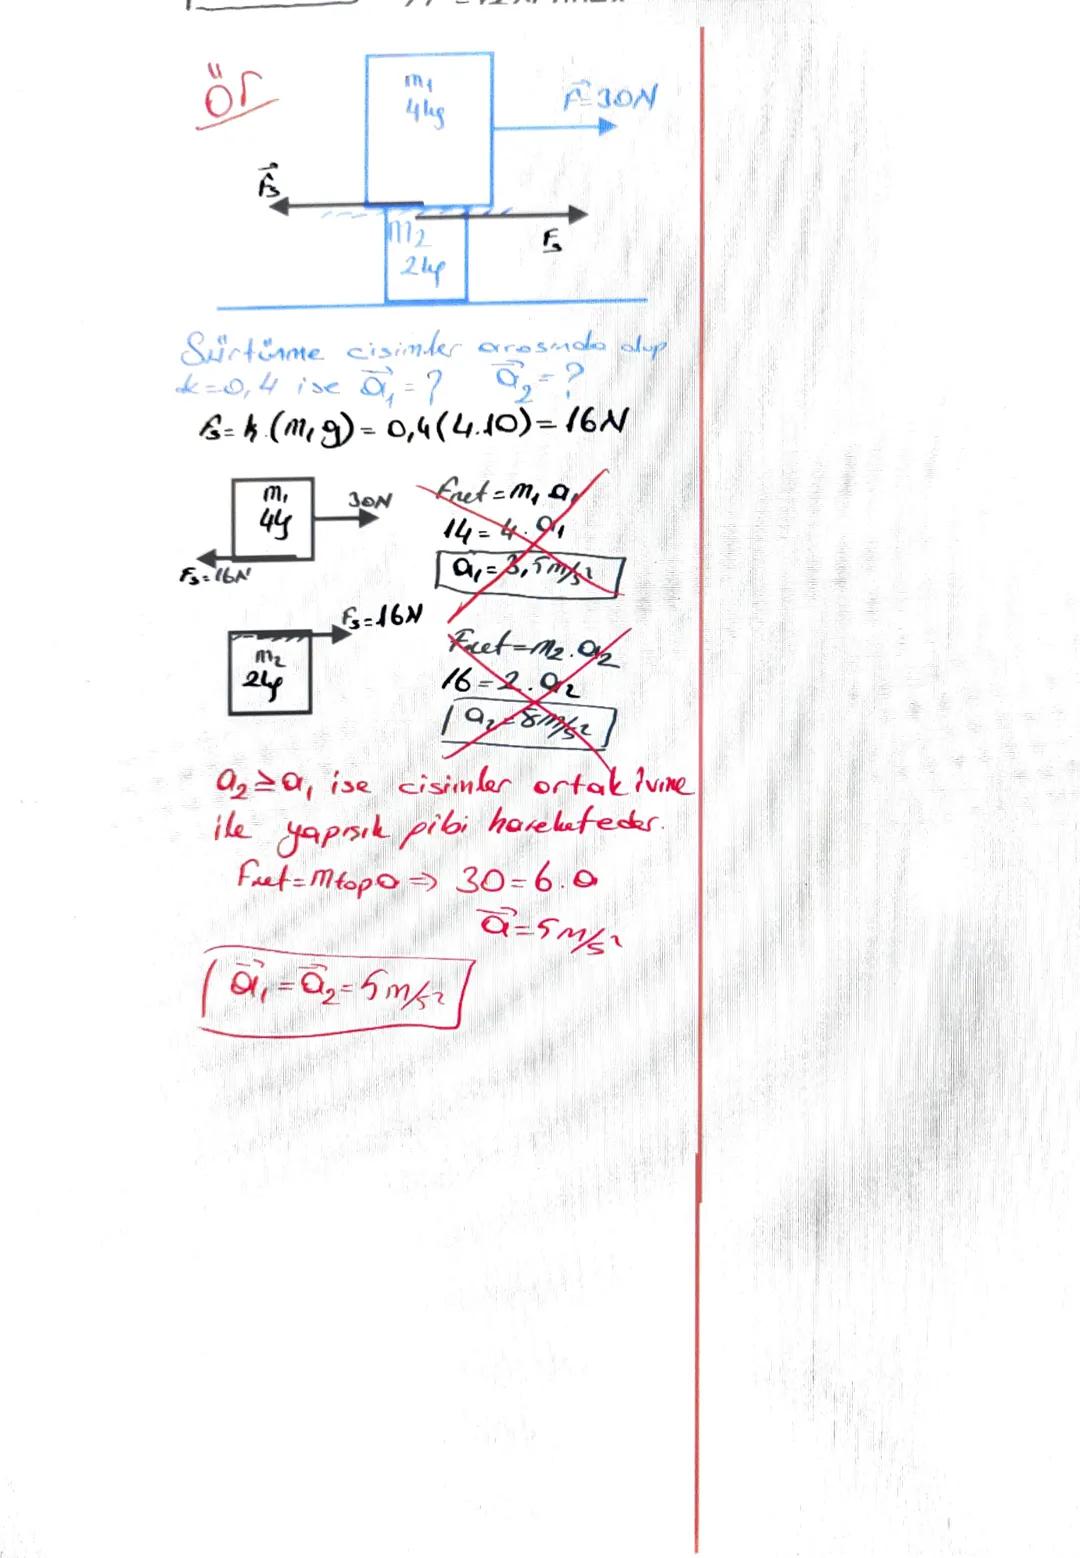 ör
m₁
4kg
F⃗=30N
F⃗s
m₂
2kg
Fs
Sürtünme cisimler arasında olup
k=0,4 ise a⃗₁=? a⃗₂=?
fs=k.(m₁g)=0,4(4.10)=16N
m₁
4kg
30N
Fs=16N
Fnet=m₁a₁
14=4.a₁
a₁=3,5m/s²
fs=16N
m₂
2kg
Fnet=m₂.a₂
16=2.a₂
a₂=8m/s²
a₂≥a₁ ise cisimler ortak ivme
ile yapışık gibi hareket eder.
Fnet=mtopa⇒ 30=6.a
a⃗=5m/s²
a⃗₁=a⃗₂=5m/s²